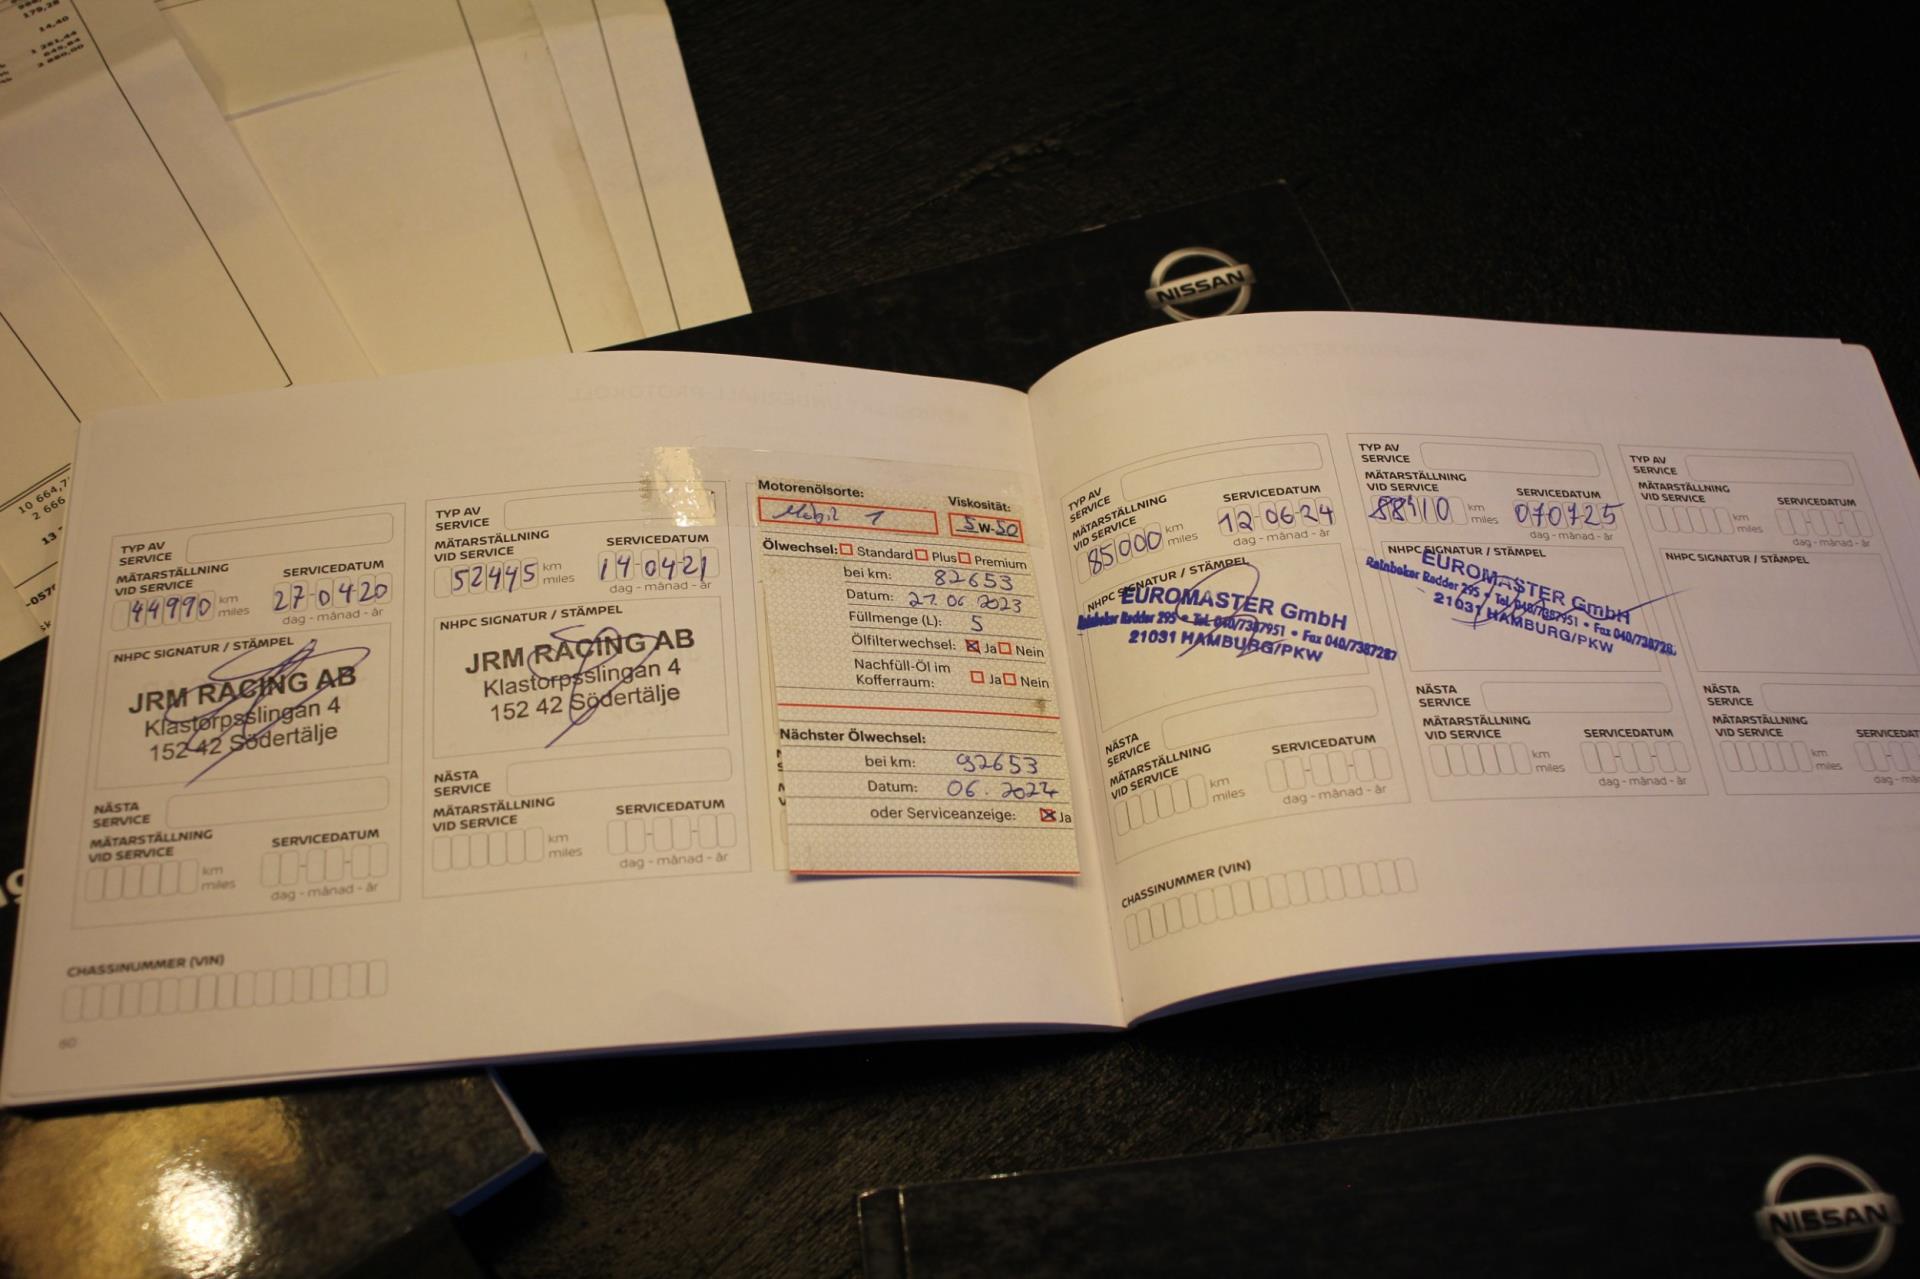 179,28
14,40
1 281,44
645,84
2 880,00
2 666
NISSAN
TYP AV
SERVICE
MÄTARSTÄLLNING
VID SERVICE
SERVICEDATUM
44990 km
miles
27-04-20
dag - månad - år
NHPC SIGNATUR / STÄMPEL
JRM RACING AB
Klastorpsslingan 4
152 42 Södertälje
NÄSTA
SERVICE
MÄTARSTÄLLNING
VID SERVICE
SERVICEDATUM
km
miles
dag - månad - år
CHASSINUMMER (VIN)
60
TYP AV
SERVICE
MÄTARSTÄLLNING
VID SERVICE
SERVICEDATUM
52445 km
miles
14-04-21
dag - månad - år
NHPC SIGNATUR / STÄMPEL
JRM RACING AB
Klastorpsslingan 4
152 42 Södertälje
NÄSTA
SERVICE
MÄTARSTÄLLNING
VID SERVICE
SERVICEDATUM
km
miles
dag - månad - år
Motorenölsorte:
Viskosität:
Mobil 1
5W-50
Ölwechsel: Standard Plus Premium
bei km: 82653
Datum: 27.06 2023
Füllmenge (L): 5
Ölfilterwechsel: Ja Nein
Nachfüll-Öl im
Kofferraum: Ja Nein
Nächster Ölwechsel:
bei km: 92653
Datum: 06. 2024
oder Serviceanzeige: Ja
TYP AV
SERVICE
MÄTARSTÄLLNING
VID SERVICE
SERVICEDATUM
85000 km
miles
12-06-24
dag - månad - år
NHPC SIGNATUR / STÄMPEL
EUROMASTER GmbH
Reinbeker Redder 295 • Tel. 040/7387951 • Fax 040/7387287
21031 HAMBURG/PKW
NÄSTA
SERVICE
MÄTARSTÄLLNING
VID SERVICE
SERVICEDATUM
km
miles
dag - månad - år
CHASSINUMMER (VIN)
TYP AV
SERVICE
MÄTARSTÄLLNING
VID SERVICE
SERVICEDATUM
88410 km
miles
070725
dag - månad - år
NHPC SIGNATUR / STÄMPEL
EUROMASTER GmbH
Reinbeker Redder 295 • Tel. 040/7387951 • Fax 040/738728
21031 HAMBURG/PKW
NÄSTA
SERVICE
MÄTARSTÄLLNING
VID SERVICE
SERVICEDATUM
km
miles
dag - månad - år
TYP AV
SERVICE
MÄTARSTÄLLNING
VID SERVICE
SERVICEDATUM
km
miles
dag - månad - år
NHPC SIGNATUR / STÄMPEL
NÄSTA
SERVICE
MÄTARSTÄLLNING
VID SERVICE
SERVICEDAT
km
miles
dag - måna
NISSAN